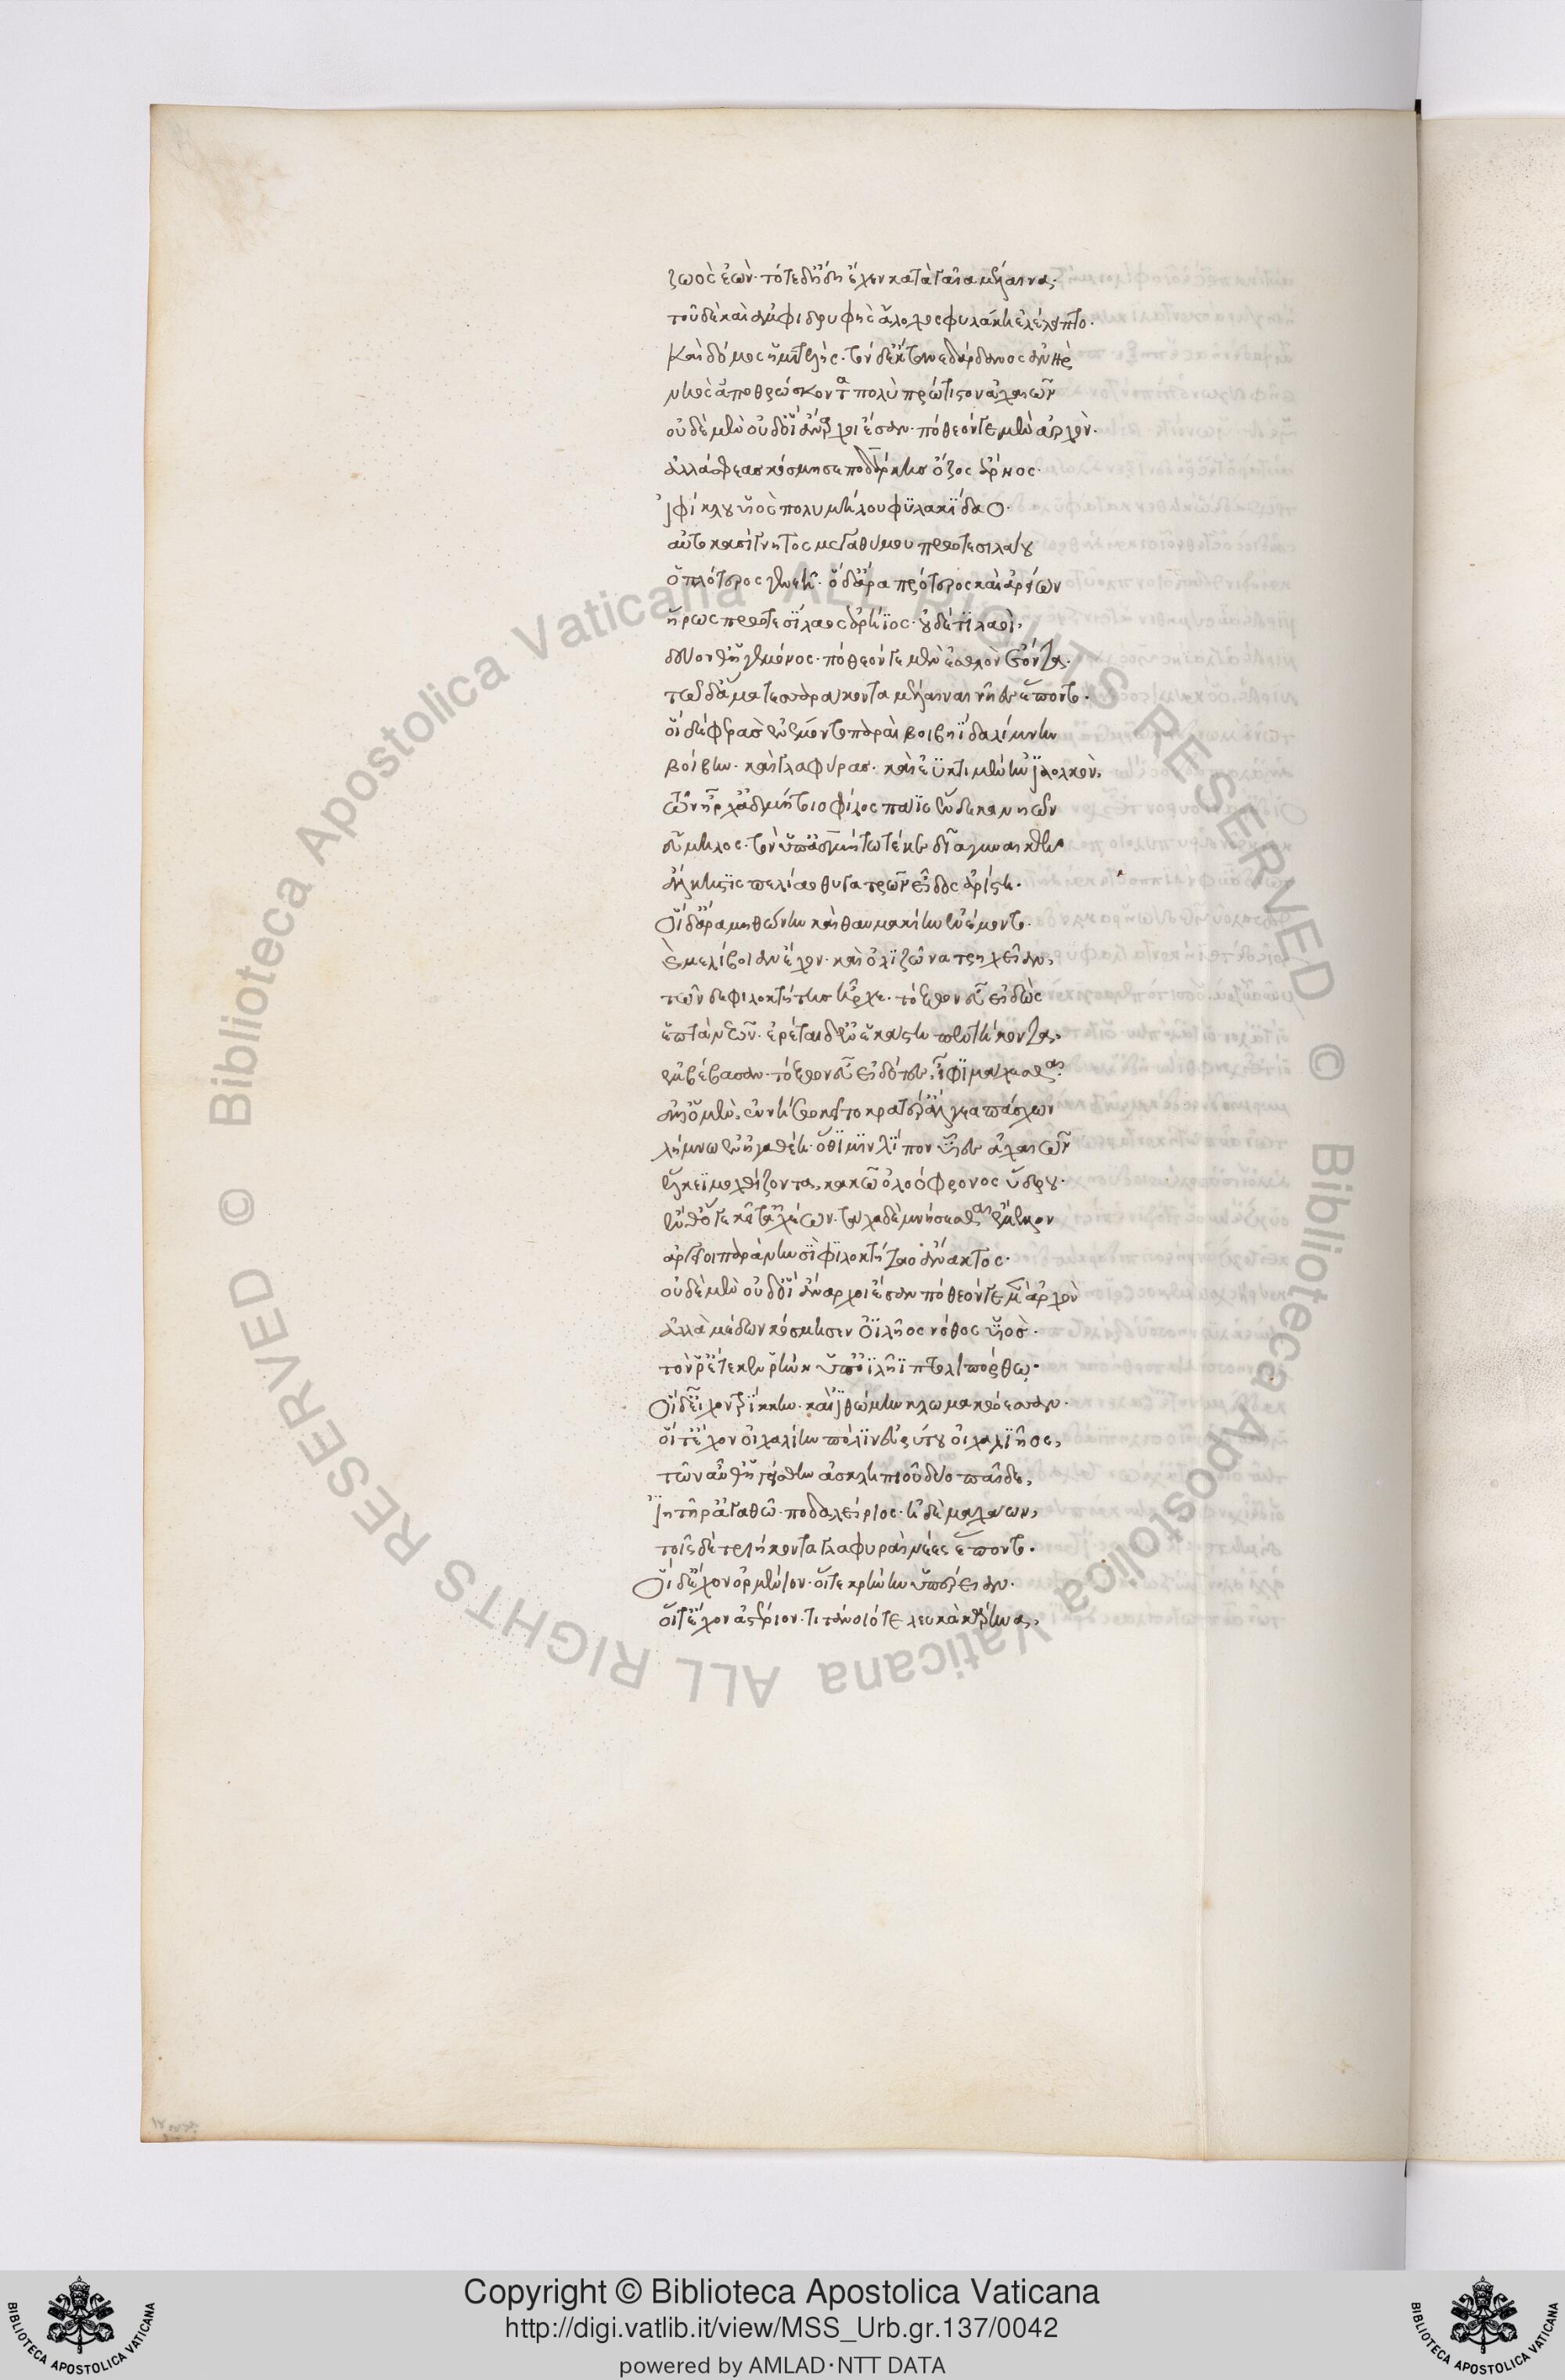 ζωὸς ἐὼν· τότε δ' ἤδη ἔχεν κατὰ γαῖα μέλαινα·
τοῦ δὲ καὶ ἀμφιδρυφὴς ἄλοχος φυλάκῃ ἐλέλειπτο·
καὶ δόμος ἡμιτελής· τὸν δ' ἔκτανε δάρδανος ἀνὴρ
νηὸς ἀποθρώσκοντα πολὺ πρώτιστον ἀχαιῶν
οὐδὲ μὲν οὐδ' οἳ ἄναρχοι ἔσαν· πόθεόν γε μὲν ἀρχόν·
ἀλλά σφεας κόσμησε ποδάρκης ὄζος ἄρηος·
ἰφίκλου υἱὸς πολυμήλου φυλακίδαο·
αὐτοκασίγνητος μεγαθύμου πρωτεσιλάου
ὁπλότερος γενεῇ· ὁ δ' ἄρα πρότερος καὶ ἀρείων
ἥρως πρωτεσίλαος ἀρήϊος· οὐδέ τι λαοὶ,
δεύονθ' ἡγεμόνος· πόθεόν γε μὲν ἐσθλὸν ἐόντα·
τῷ δ' ἅμα τεσσαράκοντα μέλαιναι νῆες ἕποντο·
οἳ δὲ φερὰς ἐνέμοντο παραὶ βοιβηΐδα λίμνην
βοίβην· καὶ γλαφυρὰς· καὶ ἐϋκτιμένην ἰαολκόν,
τῶν ἦρχ' ἀδμήτοιο φίλος παῖς ἕνδεκα νηῶν
εὔμηλος· τὸν ὑπ' ἀδμήτῳ τέκε δῖα γυναικῶν
ἄλκηστις πελίαο θυγατρῶν εἶδος ἀρίστη·
Οἳ δ' ἄρα μηθώνην καὶ θαυμακίην ἐνέμοντο·
καὶ μελίβοιαν ἔχον· καὶ ὀλιζῶνα τρηχεῖαν,
τῶν δὲ φιλοκτήτης ἦρχε· τόξων εὖ εἰδὼς
ἑπτὰ νεῶν· ἐρέται δ' ἐν ἑκάστῃ πεντήκοντα,
ἐμβέβασαν· τόξων εὖ εἰδότες ἶφι μάχεσθαι
ἀλλ' ὁ μὲν, ἐν νήσῳ κεῖτο κρατέρ' ἄλγεα πάσχων
λήμνῳ ἐν ἠγαθέῃ· ὅθι μιν λίπον υἷες ἀχαιῶν
ἕλκεϊ μοχθίζοντα, κακῷ ὀλοόφρονος ὕδρου·
ἔνθ' ὅ γε κεῖτ' ἀχέων· τάχα δὲ μνήσεσθαι ἔμελλον
ἀργεῖοι παρὰ νηυσὶ φιλοκτήταο ἄνακτος·
οὐδὲ μὲν οὐδ' οἳ ἄναρχοι ἔσαν πόθεόν γε μὲν ἀρχὸν
ἀλλὰ μέδων κόσμησεν ὀϊλῆος νόθος υἱός·
τόν ῥ' ἔτεκεν ῥήνη ὑπ' ὀϊλῆϊ πτολιπόρθῳ·
Οἳ δ' εἶχον τρίκκην· καὶ ἰθώμην κλωμακόεσσαν·
οἵ τ' ἔχον οἰχαλίην πόλιν εὐρύτου οἰχαλιῆος,
τῶν αὖθ' ἡγείσθην ἀσκληπιοῦ δύο παῖδε,
ἰητῆρ' ἀγαθῶ· ποδαλείριος· ἠδὲ μαχάων,
τοῖς δὲ τριήκοντα γλαφυραὶ νέες ἕποντο·
Οἳ δ' ἔχον ὀρμένιον· οἵ τε κρήνην ὑπέρειαν·
οἵ τ' ἔχον ἀστέριον· τιτάνοιό τε λευκὰ κάρηνα,
Copyright © Biblioteca Apostolica Vaticana
http://digi.vatlib.it/view/MSS_Urb.gr.137/0042
powered by AMLAD·NTT DATA
BIBLIOTECA APOSTOLICA VATICANA
BIBLIOTECA APOSTOLICA VATICANA
© Biblioteca Apostolica Vaticana ALL RIGHTS RESERVED
© Biblioteca Apostolica Vaticana ALL RIGHTS RESERVED